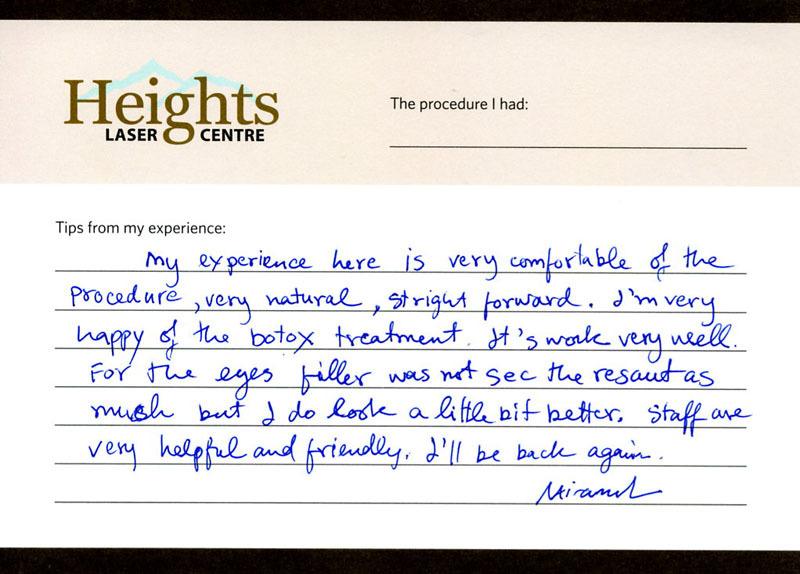 Heights
LASER CENTRE
The procedure I had:
Tips from my experience:
My experience here is very comfortable of the
procedure, very natural, stright forward. I'm very
happy of the botox treatment. It's work very well.
For the eyes filler was not see the resaut as
much but I do look a little bit better. Staff are
very helpful and friendly. I'll be back again.